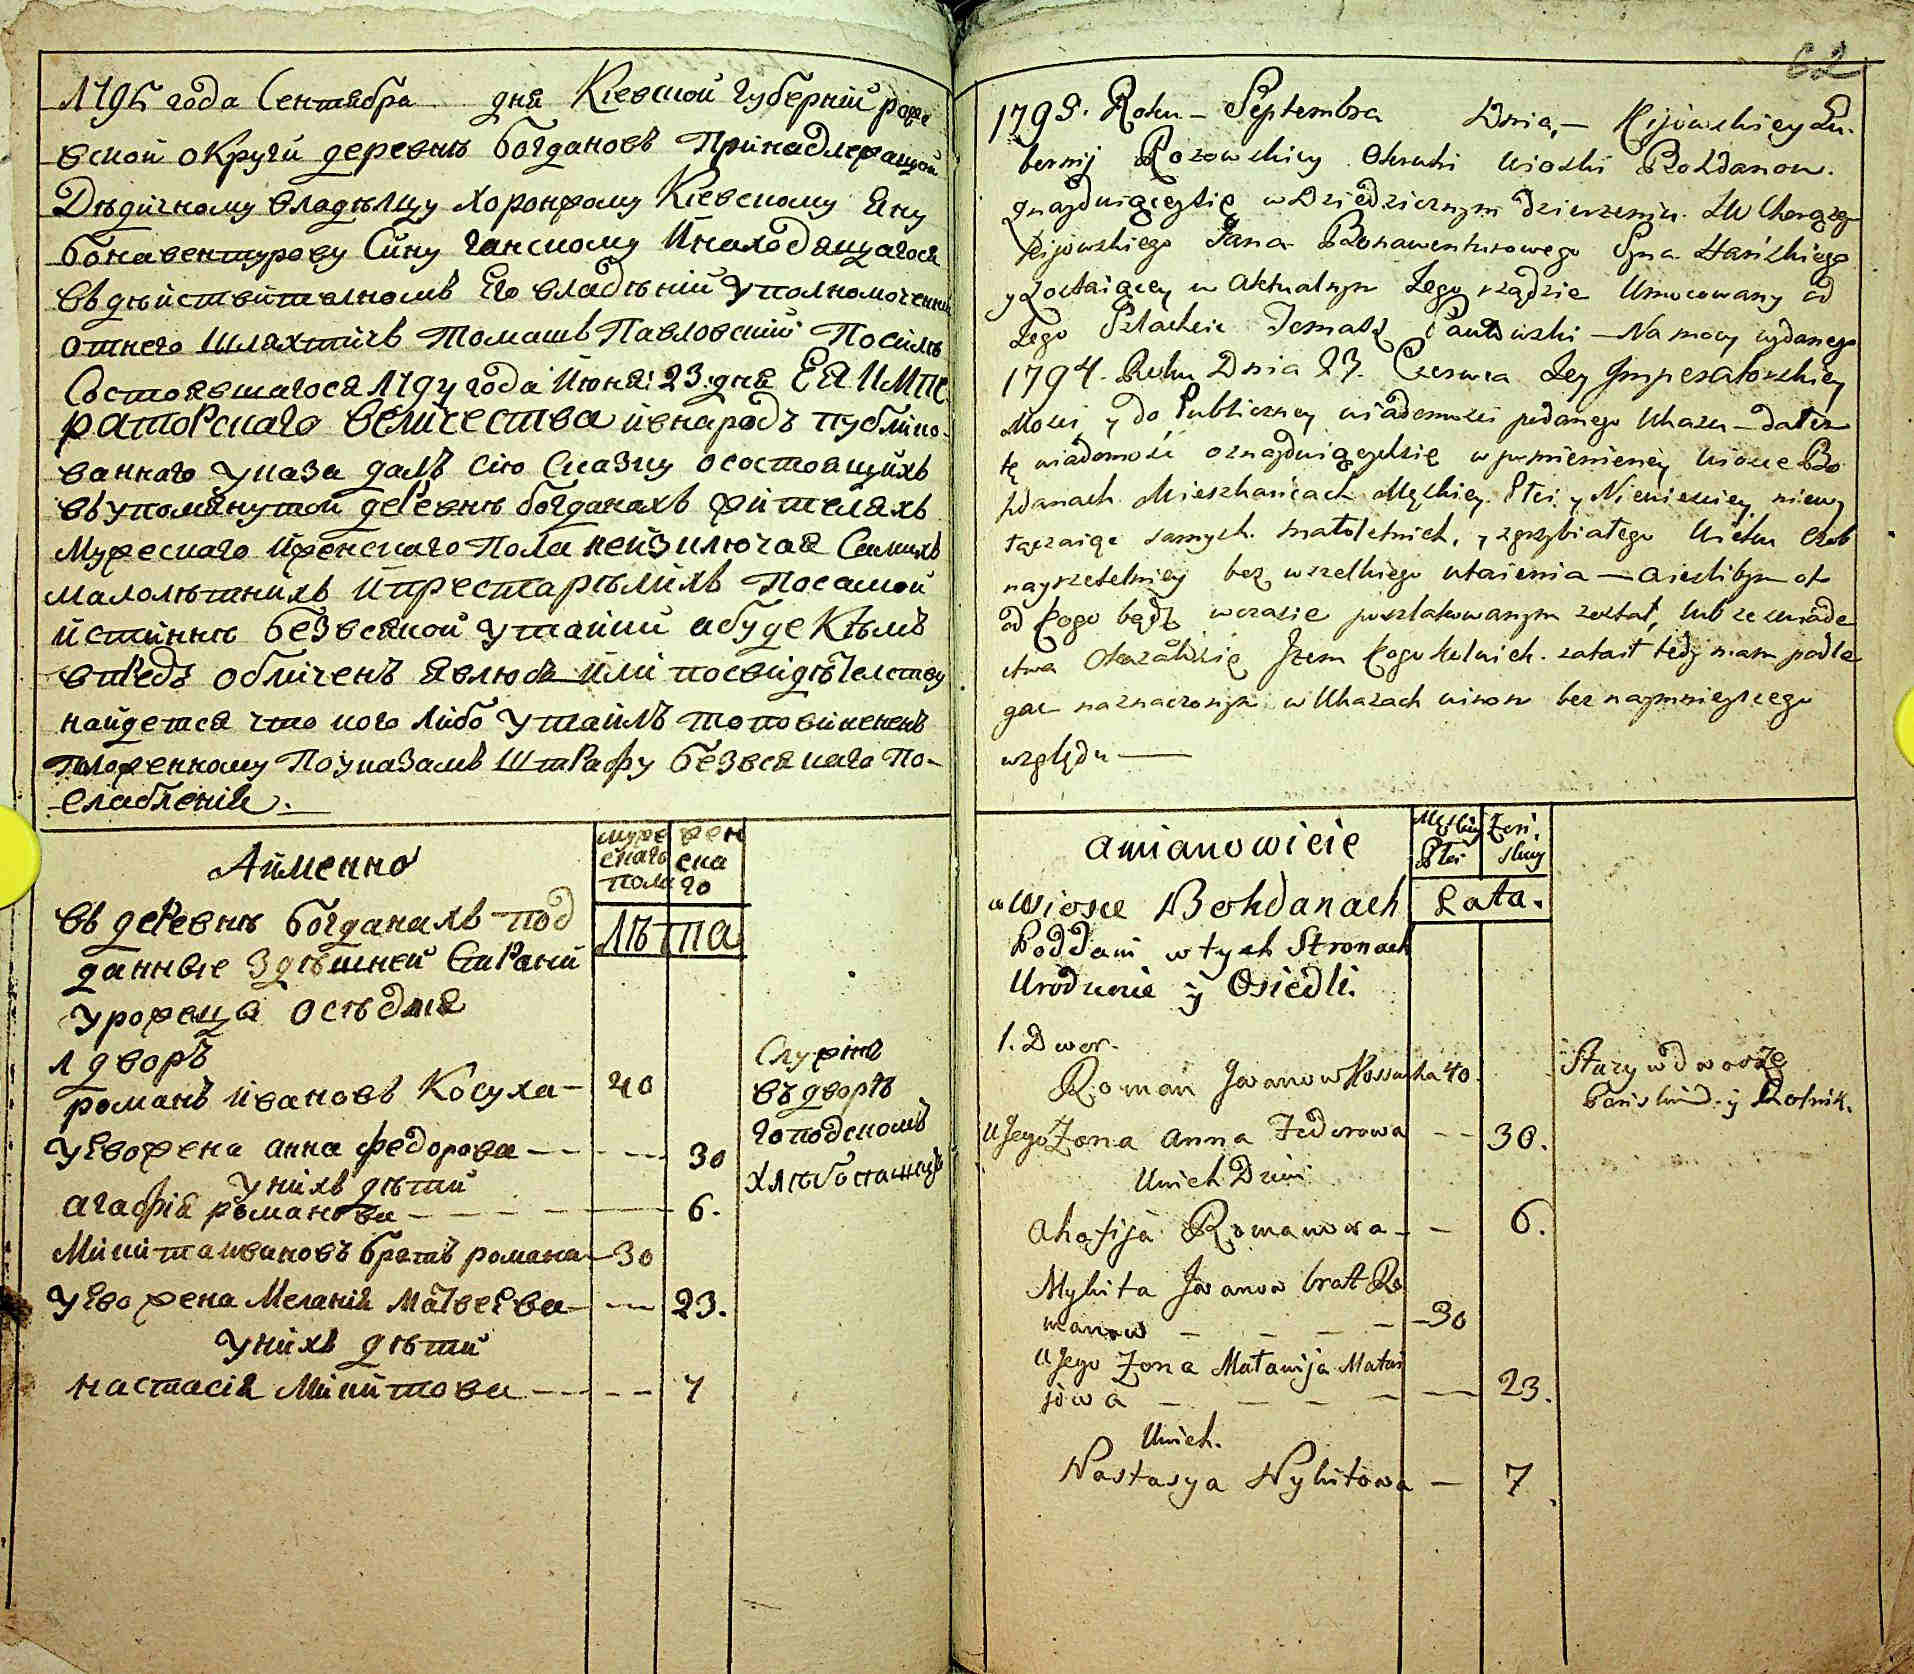 1795 года Сентября дня Кіевской губерніи роже
вской округи деревнѣ богдановъ принадлежащой
Дѣдичному владѣлцу хоронжому Кіевскому Яну
бонавентурову Сину ганскому Інаходящагося
въдѣйствителномъ Его владѣніи уполномоченни
отнего шляхтичъ томашъ Павловскій посилѣ
Состоявшагося 1794 года Июня 23 дня ЕЯ ИМПЕ
раторскаго величества ивнародъ публико
ванного указа далъ сію сказку осостоящихъ
въупомянутой деревнѣ богданахъ жителяхъ
Мужескаго иженскаго пола неизключая самихъ
малолѣтнихъ ипрестарѣлихъ посамой
истиннѣ безвсякой утайки абуде Кѣмъ
впредъ обличенъ явлюсь или посвидѣтелству
найдется что кого либо утаилъ то повиненъ
положенному поуказамъ штрафу безвсякаго по-
слабленія.
Аименно
мужескаго пола
женскаго
лѣта
въ деревнѣ богданахъ под
данные здѣшней страни
уроженцы осѣдлія
1 дворъ
романъ ивановъ Косуха — 40
Служитъ
въдворѣ
господскомъ
хлѣбопашецъ
уево жена анна федорова — 30
унихъ дѣти
агафія романова — 6.
Микита ивановъ братъ романа — 30
уево жена Меланія Матвеева — 23.
унихъ дѣти
настасія Микитова — 7
62
1795. Roku — Septembra Dnia, — Kijowskiey Gu.
bernij Rożowskiey Okruhi wioski Bohdanow.
znayduiącey się w Dziedzicznym dzierzeniu JW Chorążego
Kijowskiego Jana Bonawenturowego Syna Hańskiego
y zostaiącey w Aktualnym Jego rządzie Umocowany od
Jego Szlachcic Tomasz Pawłowski — Na mocy wydanego
1794. Roku Dnia 23. Czerwca Jey Imperatorskiey
Mości y do Publiczney wiadomości podanego Ukazu — daię
tę wiadomość o znayduiących się w pomienieney wiosce Bo
hdanach Mieszkańcach Męskiey Płci y Niewieściey, niewy
łączaiąc samych małoletnich, y zgrzybiałego Wieku Osob
nayrzetelniey bez wszelkiego utaienia — a ieślibym
od kogo bądź wczasie poszlakowanym został, lub ze świade
ctwa Okazałosię żem kogokolwiek zataił tedy mam podle
gac naznaczonym w Ukazach winom bez naymnieyszego
względu —
amianowicie
Męskiey Płci
Żeńskiey
Lata.
w wiosce Bohdanach
Poddani w tych Stronach
Urodzenie y Osiedli.
1. Dwor.
Roman Iwanow Kossucha 40.
Służy w dworze
Pańskim y Rolnik.
U Jego Żona Anna Fedorowa — 30.
Unich Dzieci
Ahafija Romanowa — 6.
Mykita Iwanow brat Ro
manow — 30
U Jego Żona Małanija Matwi
jowa — 23.
Unich.
Nastasya Mykitowa — 7